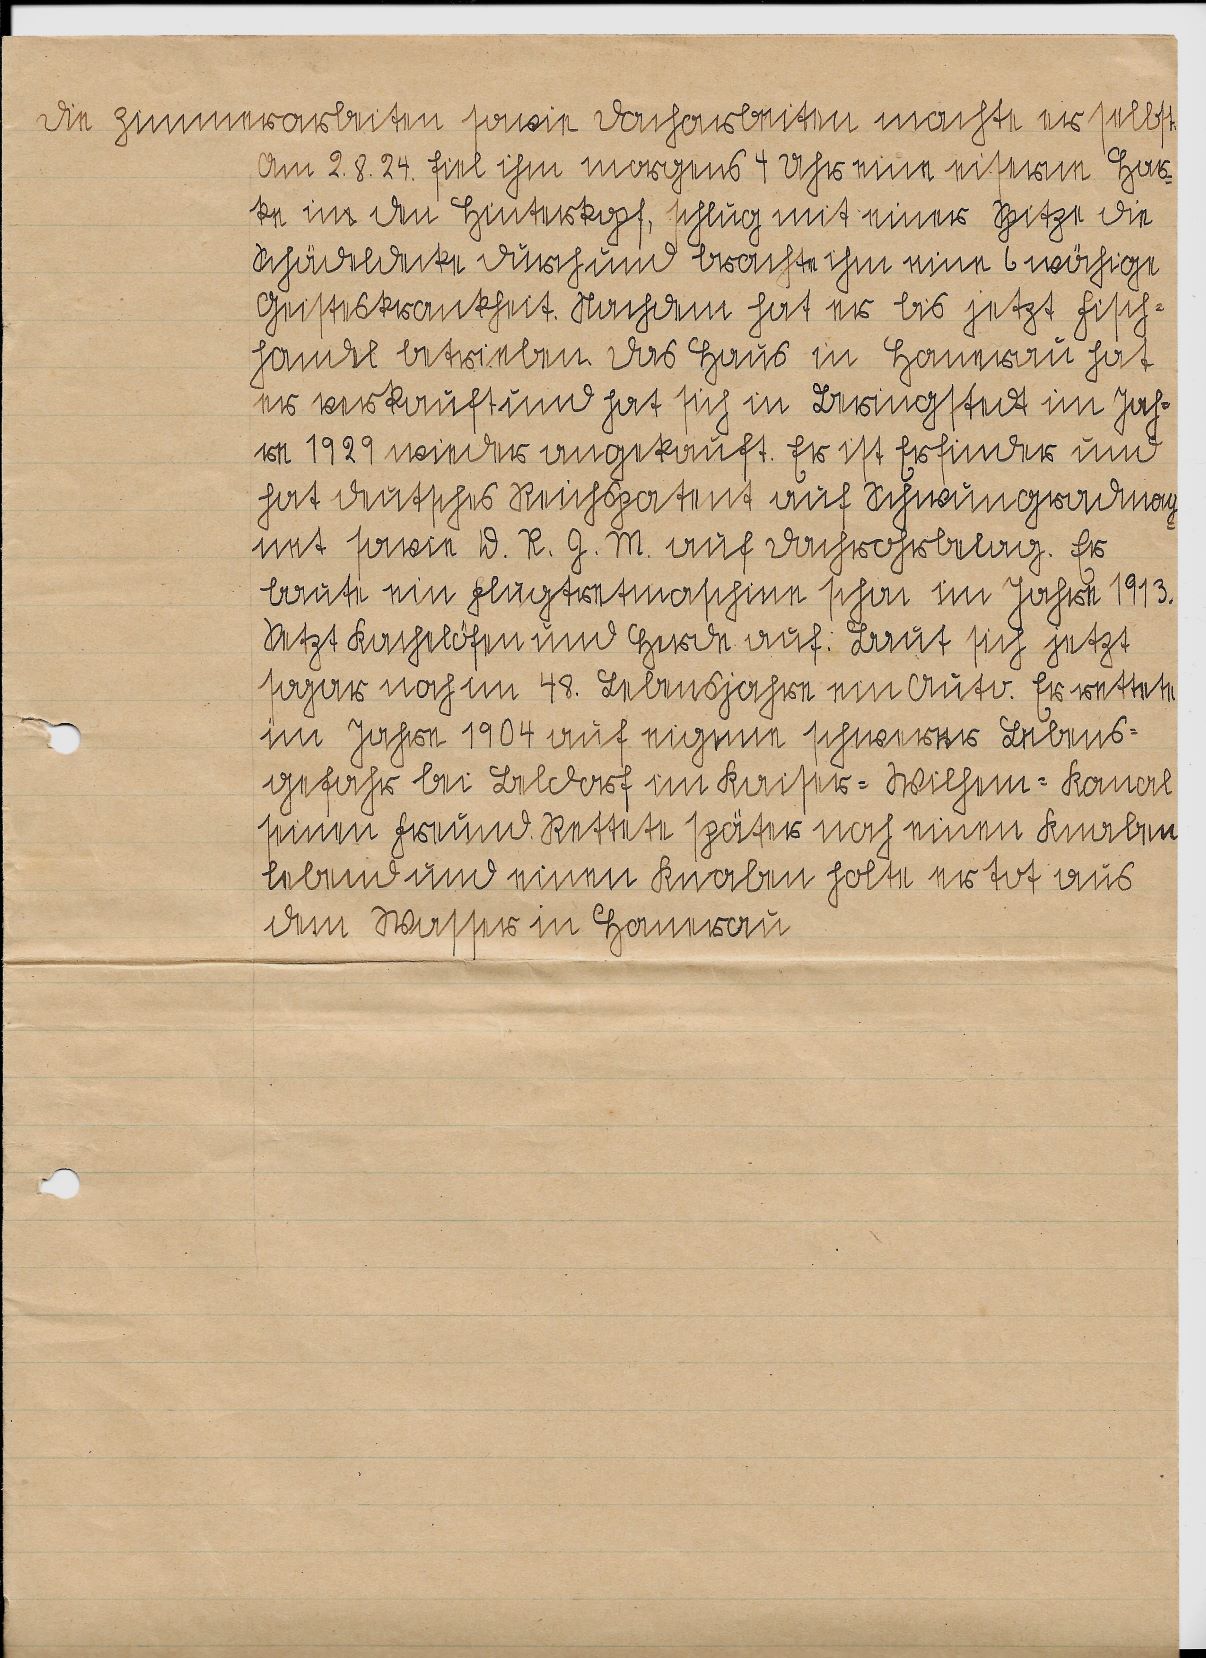 Die Zimmerarbeiten sowie Dacharbeiten machte er selbst.
Am 2.8.24. fiel ihm morgens 4 Uhr eine eiserne Har=
ke in den Hinterkopf, schlug mit einer Spitze die
Schädeldecke durch und brachte ihm eine 6 wöchige
Geisteskrankheit. Nachdem hat er bis jetzt Fisch=
handel betrieben. Das Haus in Hanerau hat
er verkauft und hat sich in Beringstedt im Jah=
re 1929 wieder angekauft. Er ist Erfinder und
hat deutsches Reichspatent auf Schwungradmag=
net sowie D. R. G. M. auf Dachrohrbelag. Er
baute ein Flugtretmaschine schon im Jahre 1913.
Setzt Kachelöfen und Herde auf. Baut sich jetzt
sogar noch im 48. Lebensjahre ein Auto. Er rettete
im Jahre 1904 auf eigene schwerer Lebens=
gefahr bei Beldorf im Kaiser= Wilhem= Kanal
seinen Freund. Rettete später noch einen Knaben
lebend und einen Knaben holte er tot aus
dem Wasser in Hanerau